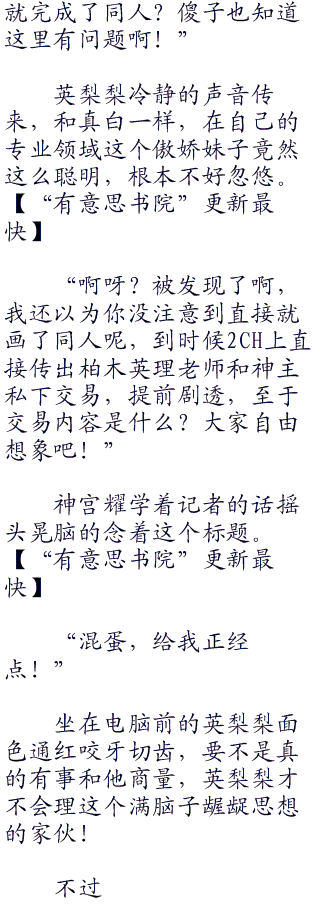 就完成了同人？傻子也知道
这里有问题啊！”
英梨梨冷静的声音传
来，和真白一样，在自己的
专业领域这个傲娇妹子竟然
这么聪明，根本不好忽悠。
【“有意思书院”更新最
快】
“啊呀？被发现了啊，
我还以为你没注意到直接就
画了同人呢，到时候2CH上直
接传出柏木英理老师和神主
私下交易，提前剧透，至于
交易内容是什么？大家自由
想象吧！”
神宫耀学着记者的话摇
头晃脑的念着这个标题。
【“有意思书院”更新最
快】
“混蛋，给我正经
点！”
坐在电脑前的英梨梨面
色通红咬牙切齿，要不是真
的有事和他商量，英梨梨才
不会理这个满脑子龌龊思想
的家伙！
不过